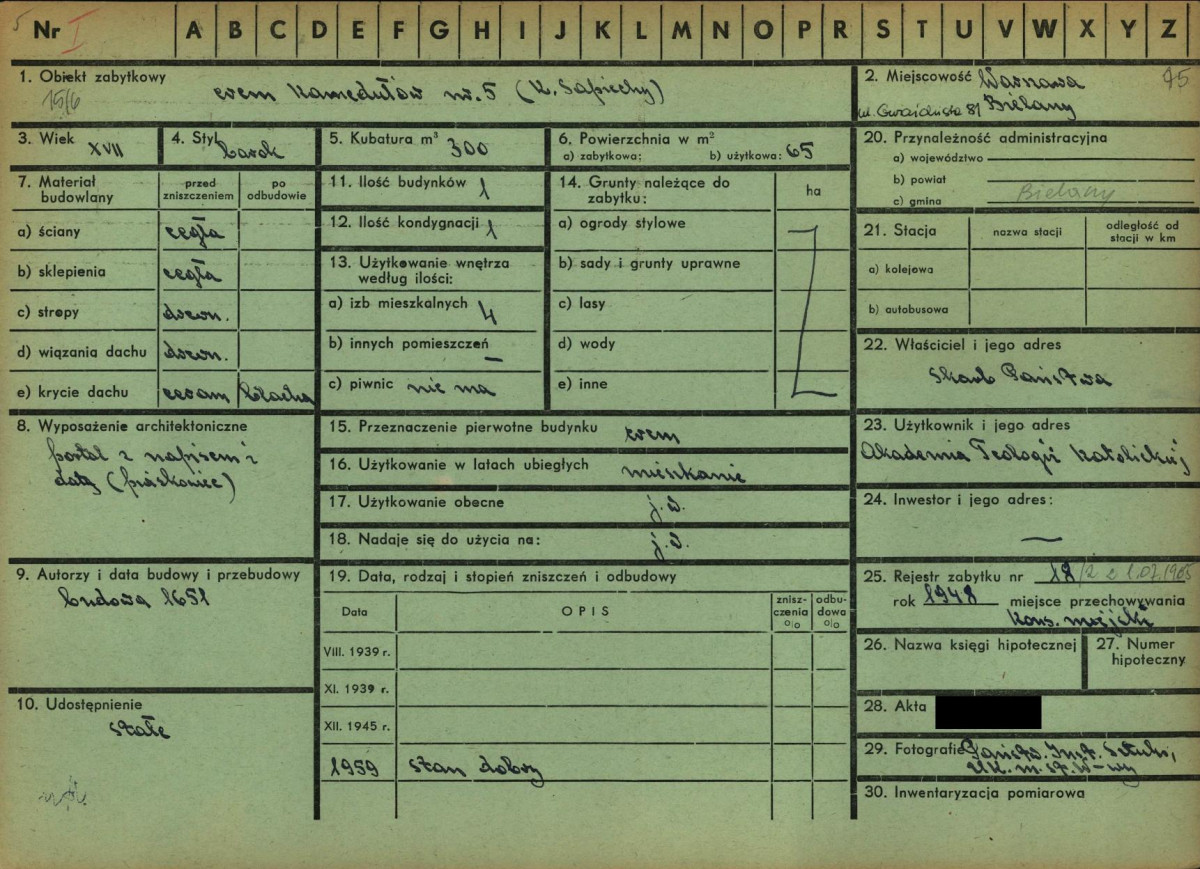 5 Nr I A B C D E F G H I J K L M N O P R S T U V W X Y Z
1. Obiekt zabytkowy
15/6
erem Kamedułów nr. 5 (K. Sapiechy)
2. Miejscowość Warszawa 45
ul. Gwiaździsta 81 Bielany
3. Wiek XVII
4. Styl barok
5. Kubatura m³ 300
6. Powierzchnia w m²
a) zabytkowa: b) użytkowa: 65
7. Materiał budowlany
przed zniszczeniem
po odbudowie
a) ściany cegła
b) sklepienia cegła
c) stropy drewn.
d) wiązania dachu drewn.
e) krycie dachu ceram blacha
8. Wyposażenie architektoniczne
portal z napisem i
datą (piaskowiec)
9. Autorzy i data budowy i przebudowy
budowa 1651
10. Udostępnienie
stałe
11. Ilość budynków 1
12. Ilość kondygnacji 1
13. Użytkowanie wnętrza
według ilości:
a) izb mieszkalnych 4
b) innych pomieszczeń —
c) piwnic nie ma
14. Grunty należące do
zabytku:
ha
a) ogrody stylowe
b) sady i grunty uprawne
c) lasy
d) wody
e) inne
15. Przeznaczenie pierwotne budynku erem
16. Użytkowanie w latach ubiegłych mieszkanie
17. Użytkowanie obecne j.w.
18. Nadaje się do użycia na: j.w.
19. Data, rodzaj i stopień zniszczeń i odbudowy
Data OPIS znisz-
czenia
o|o
odbu-
dowa
o|o
VIII. 1939 r.
XI. 1939 r.
XII. 1945 r.
1959 stan dobry
20. Przynależność administracyjna
a) województwo
b) powiat
c) gmina Bielany
21. Stacja
nazwa stacji
odległość od
stacji w km
a) kolejowa
b) autobusowa
22. Właściciel i jego adres
Skarb Państwa
23. Użytkownik i jego adres
Akademia Teologii Katolickiej
24. Inwestor i jego adres:
—
25. Rejestr zabytku nr 18/2 z 1.07.1965
rok 1948 miejsce przechowywania
Kons. miejski
26. Nazwa księgi hipotecznej
27. Numer
hipoteczny
28. Akta
29. Fotografie Państw. Inst. Sztuki,
U.K. m. st. W-wy
30. Inwentaryzacja pomiarowa